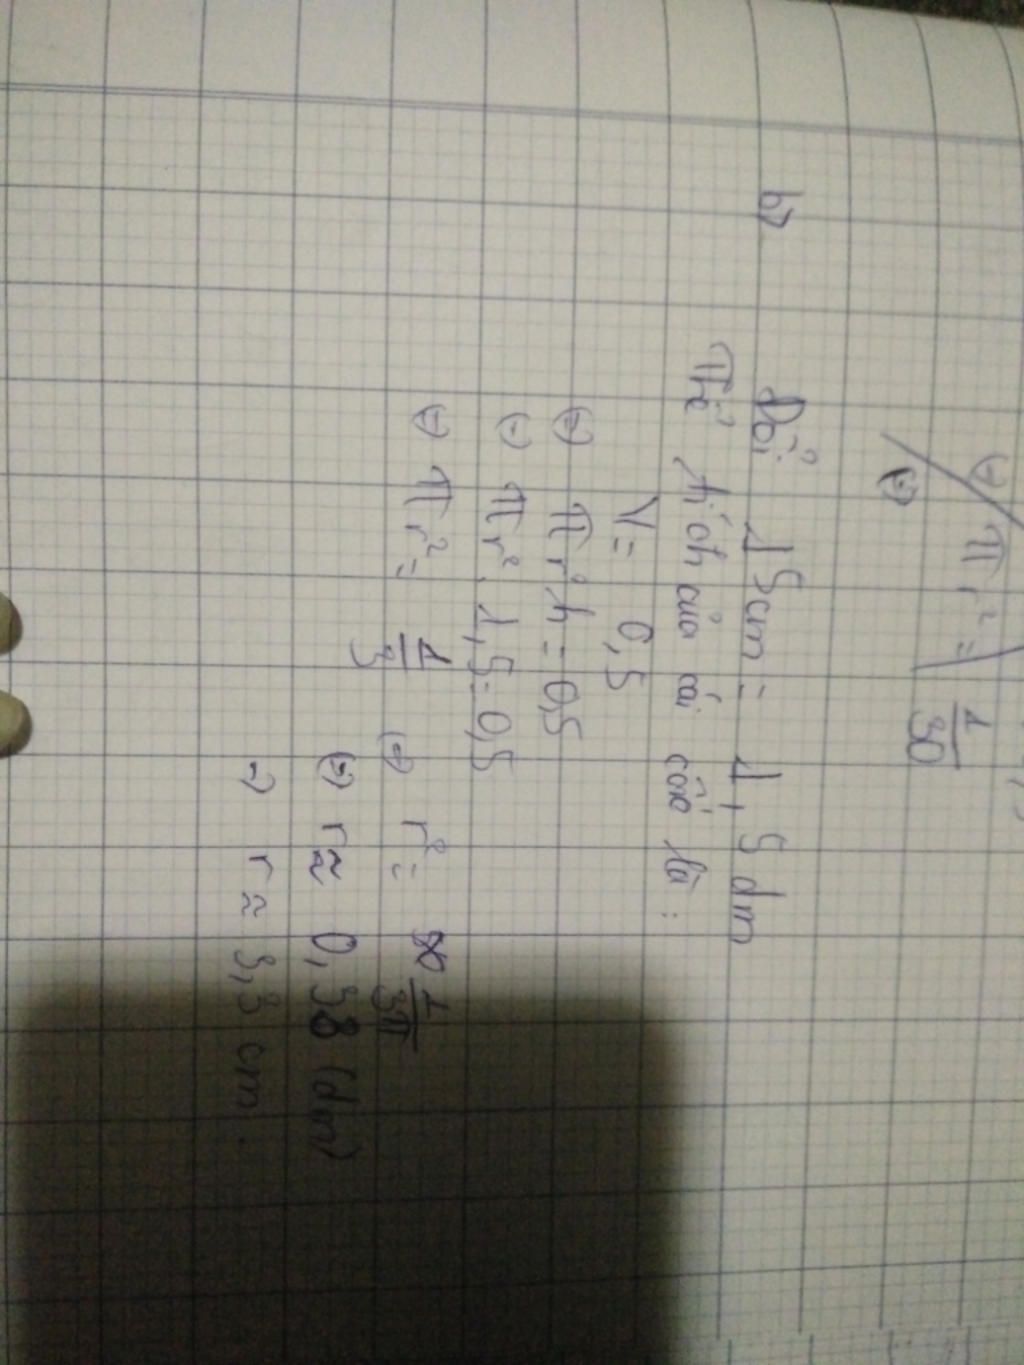 ⇔ πr² = 1/30
⇔
b) Đổi 15cm = 1,5 dm
Thể tích của cái cốc là:
V = 0,5
⇔ πr²h = 0,5
⇔ πr². 1,5 = 0,5
⇔ πr² = 1/3
⇔ r² = 1/3π
⇔ r ≈ 0,38 (dm)
⇒ r ≈ 3,3 cm.